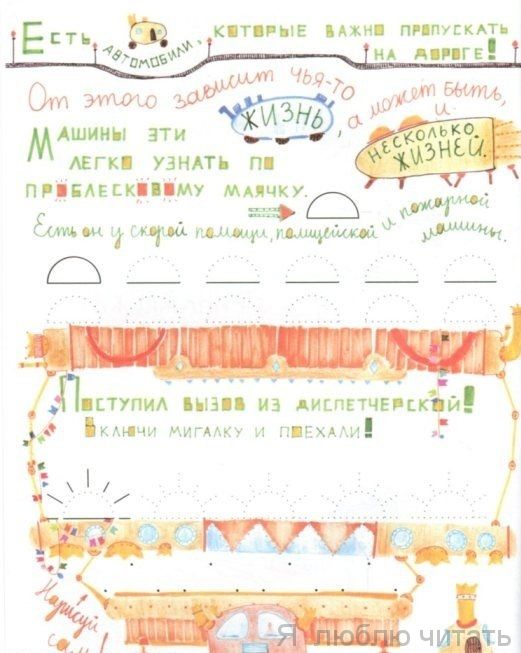 Есть автомобили, которые важно пропускать
на дороге!
От этого зависит чья-то
жизнь, а может быть,
и несколько
жизней.
Машины эти
легко узнать по
проблесковому маячку.
Есть он у скорой помощи, полицейской и пожарной
машины.
Поступил вызов из диспетчерской!
Включи мигалку и поехали!
Нарисуй
сам!
Я люблю читать